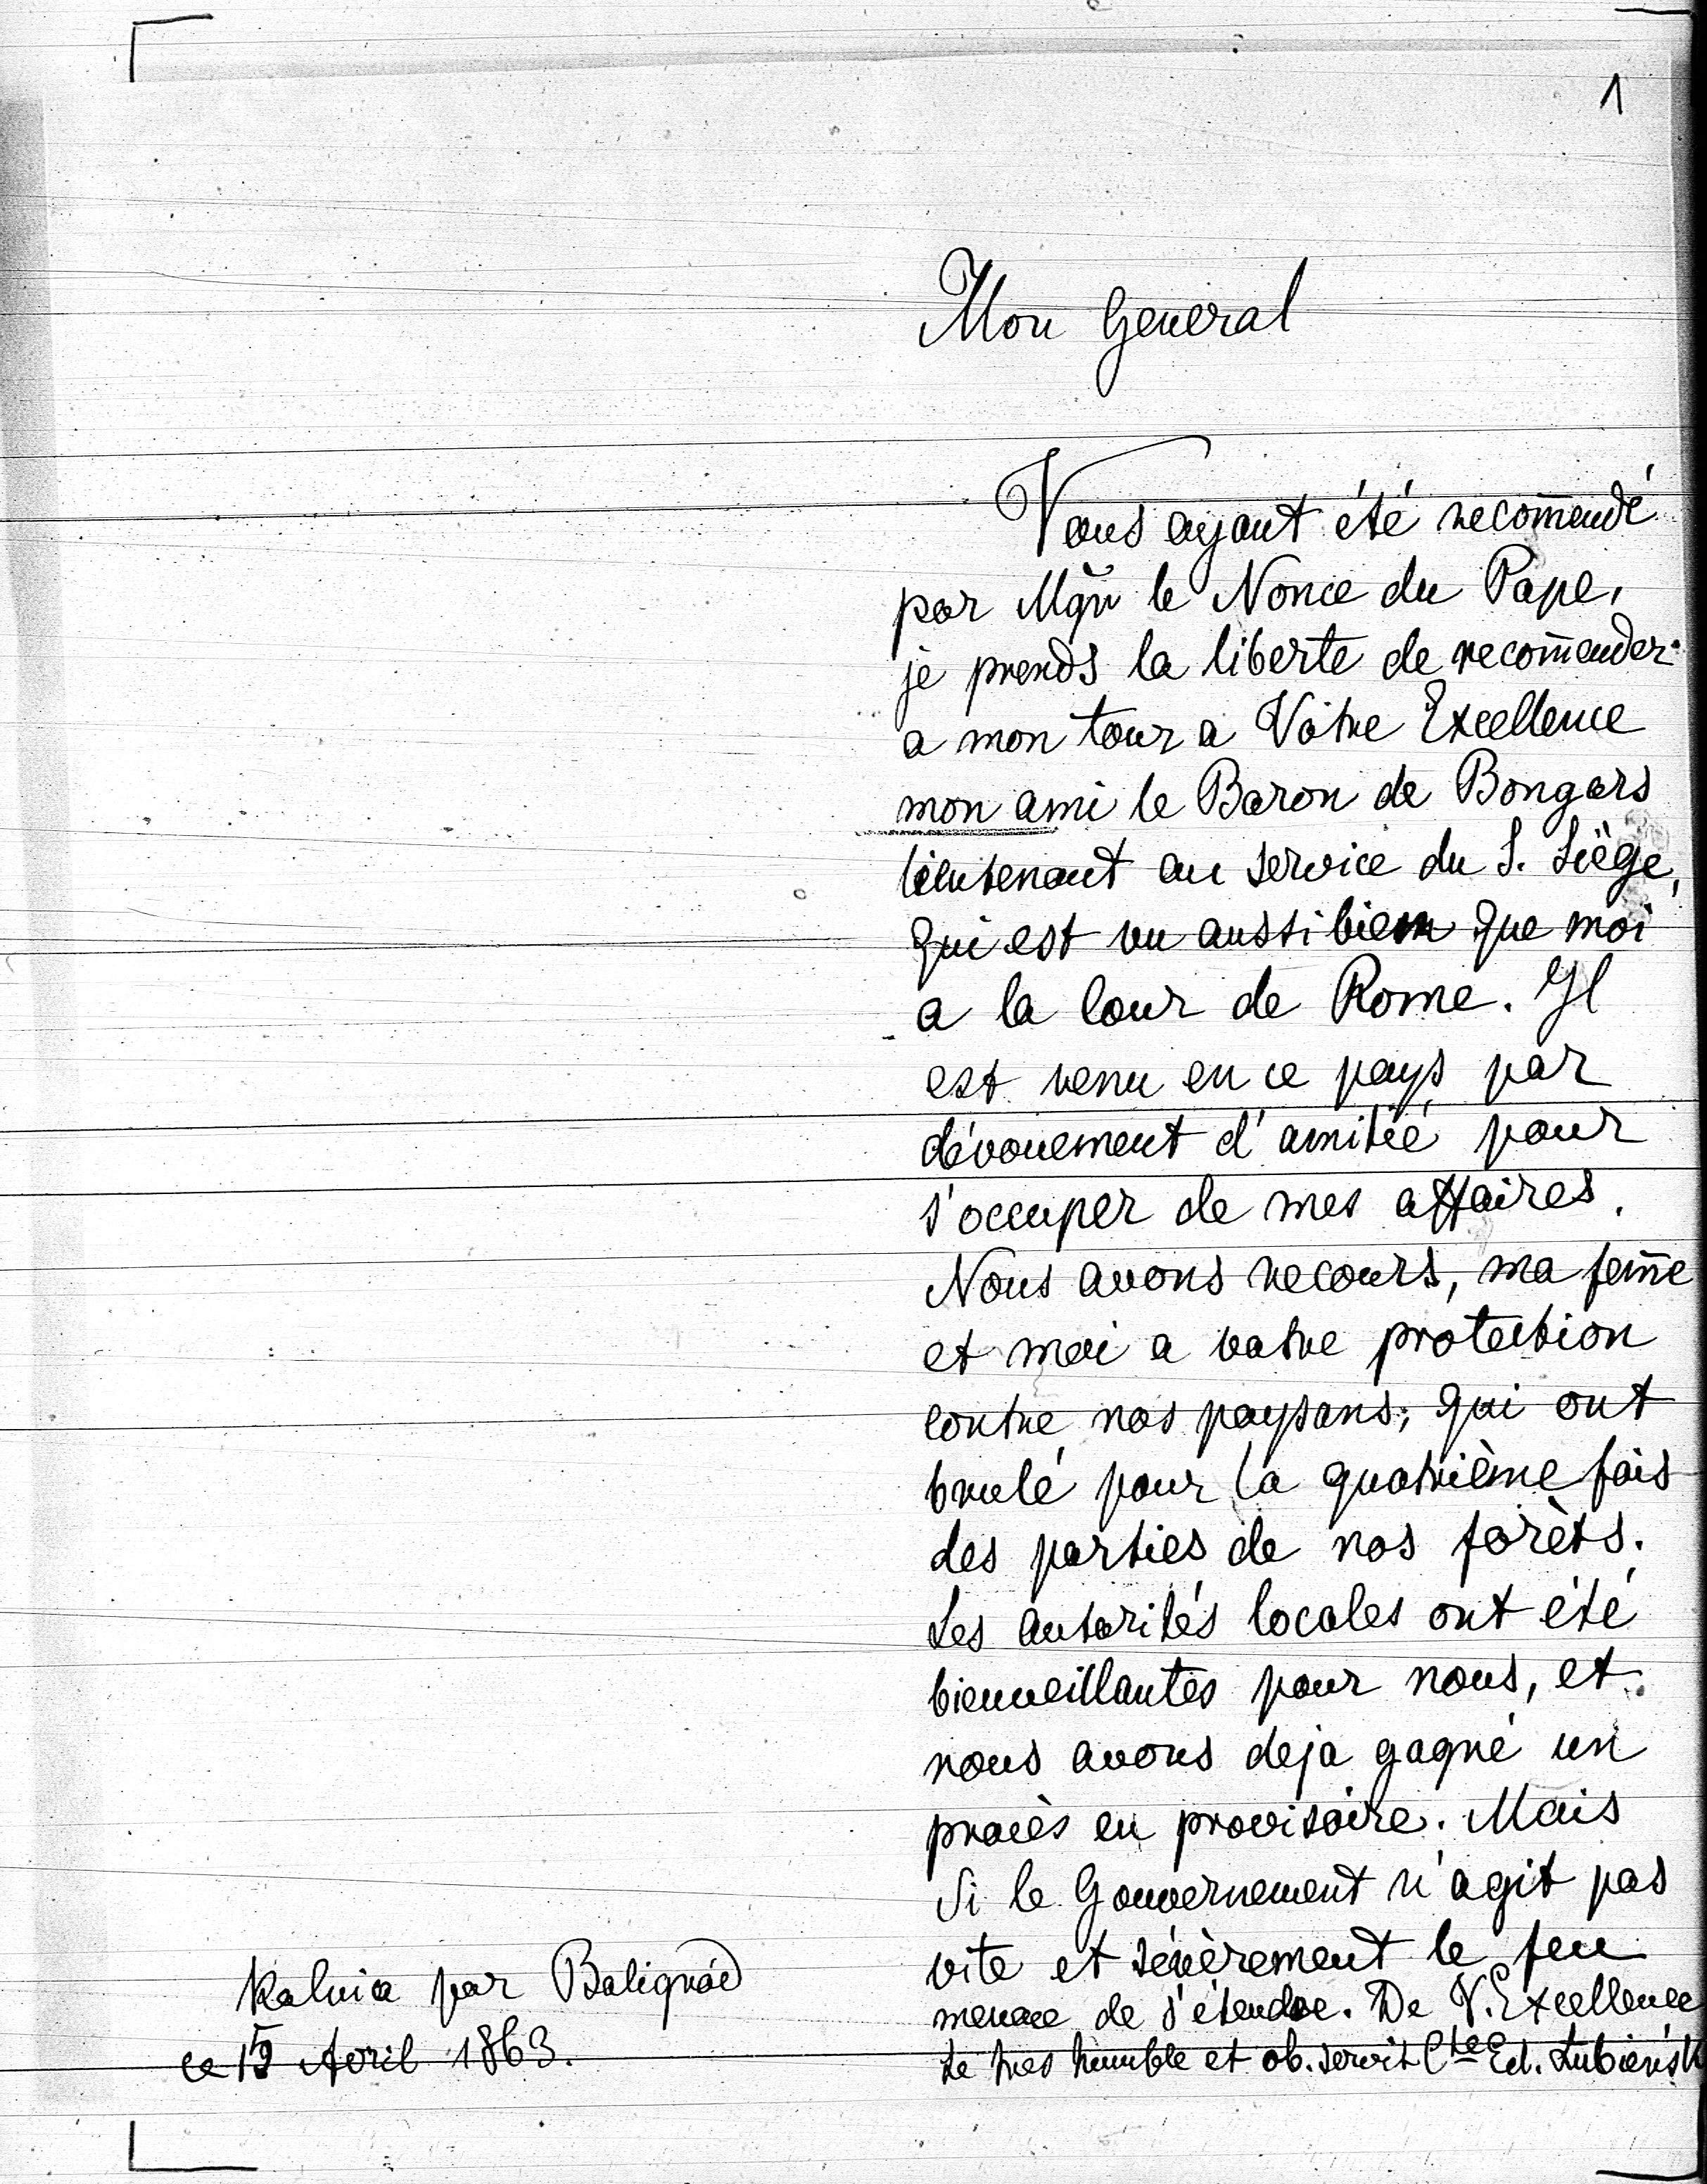 1
Mon General
Vous ayant été recom̄endé
par Mgr le Nonce du Pape,
je prends la liberte de recom̄ender
a mon tour a Vôtre Excellence
mon ami le Baron de Bongars
lieutenant au service du S. Siège,
qui est vu aussi bien que moi
a la Cour de Rome. Il
est venu en ce pays par
dévouement d'amitié pour
s'occuper de mes affaires.
Nous avons recours, ma fem̄e
et moi a votre protection
contre nos paysans, qui ont
brulé pour la quatrième fois
des parties de nos forèts.
Les autorités locales ont été
bienveillantes pour nous, et
nous avons deja gagné un
procès en provisoire. Mais
si le Gouvernement n'agit pas
vite et sévèrement le feu
menace de s'étendre. De V. Excellence
le tres humble et ob. servit Cte Ed. Łubieńsk
par
ce 15 Avril 1863.